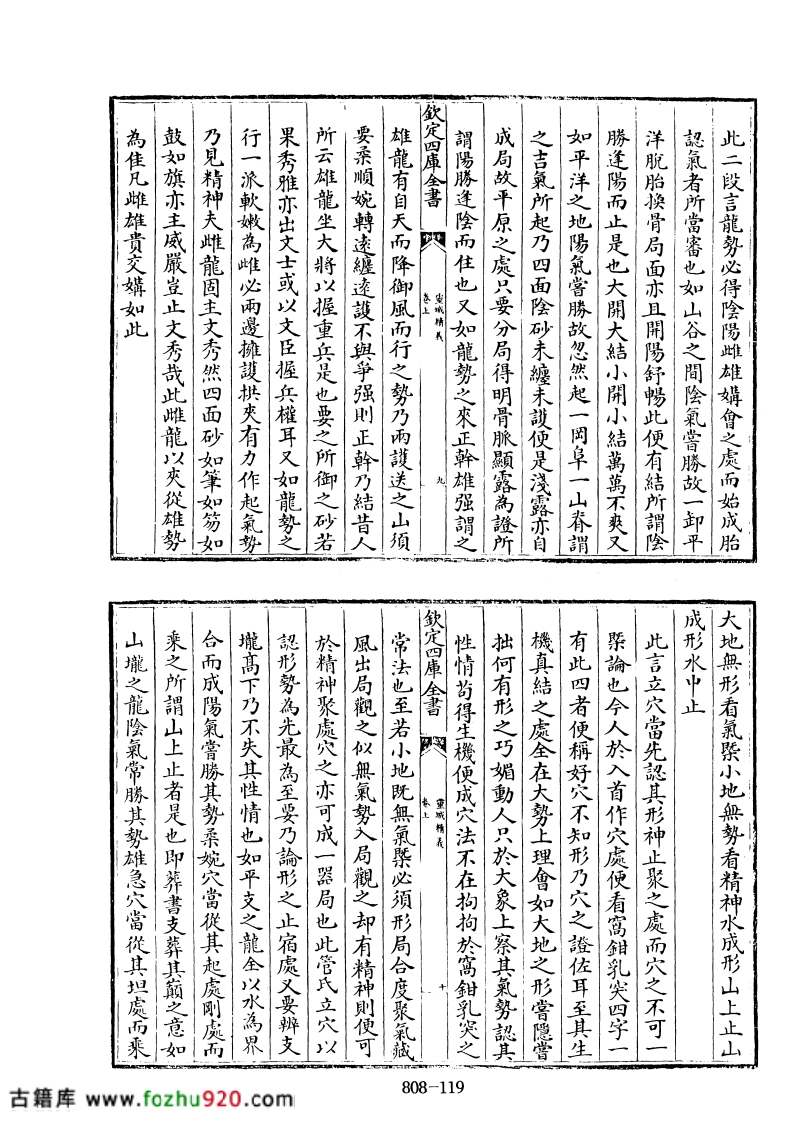 此二段言龍勢必得隂陽雌雄媾會之處而始成胎
認氣者所當審也如山谷之間隂氣嘗勝故一卸平
洋脫胎換骨局面亦且開陽舒暢此便有結所謂隂
勝逢陽而止是也大開大結小開小結萬萬不爽又
如平洋之地陽氣嘗勝故忽然起一岡阜一山脊謂
之吉氣所起乃四面隂砂未纏未護便是淺露亦自
成局故平原之處只要分局得明骨脈顯露為證所
謂陽勝逢隂而住也又如龍勢之來正幹雄强謂之
欽定四庫全書
靈城精義
卷上
九
雄龍有自天而降御風而行之勢乃兩護送之山須
要柔順婉轉逺纏逺護不與爭强則正幹乃結昔人
所云雄龍坐大將以握重兵是也要之所御之砂若
果秀雅亦出文士或以文臣握兵權耳又如龍勢之
行一派軟嫩為雌必兩邊擁護拱夾有力作起氣勢
乃見精神夫雌龍固主文秀然四面砂如筆如笏如
鼓如旗亦主威嚴豈止文秀哉此雌龍以夾從雄勢
為佳凡雌雄貴交媾如此
大地無形看氣槩小地無勢看精神水成形山上止山
成形水中止
此言立穴當先認其形神止聚之處而穴之不可一
槩論也今人於入首作穴處便看窩鉗乳突四字一
有此四者便稱好穴不知形乃穴之證佐耳至其生
機真結之處全在大勢上理會如大地之形嘗隱嘗
拙何有形之巧媚動人只於大象上察其氣勢認其
性情茍得生機便成穴法不在拘拘於窩鉗乳突之
欽定四庫全書
靈城精義
卷上
十
常法也至若小地既無氣槩必須形局合度聚氣藏
風出局觀之似無氣勢入局觀之却有精神則便可
於精神聚處穴之亦可成一器局也此管氏立穴以
認形勢為先最為至要乃論形之止宿處又要辨支
壠髙下乃不失其性情也如平支之龍全以水為界
合而成陽氣嘗勝其勢柔婉穴當從其起處剛處而
乘之所謂山上止者是也即葬書支葬其巔之意如
山壠之龍隂氣常勝其勢雄急穴當從其坦處而乘
808-119
古籍库 www.fozhu920.com